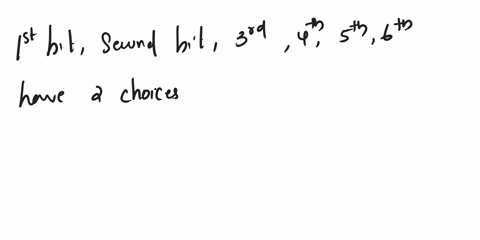 1st bit, Second bit, 3rd, 4th, 5th, 6th
have 2 choices